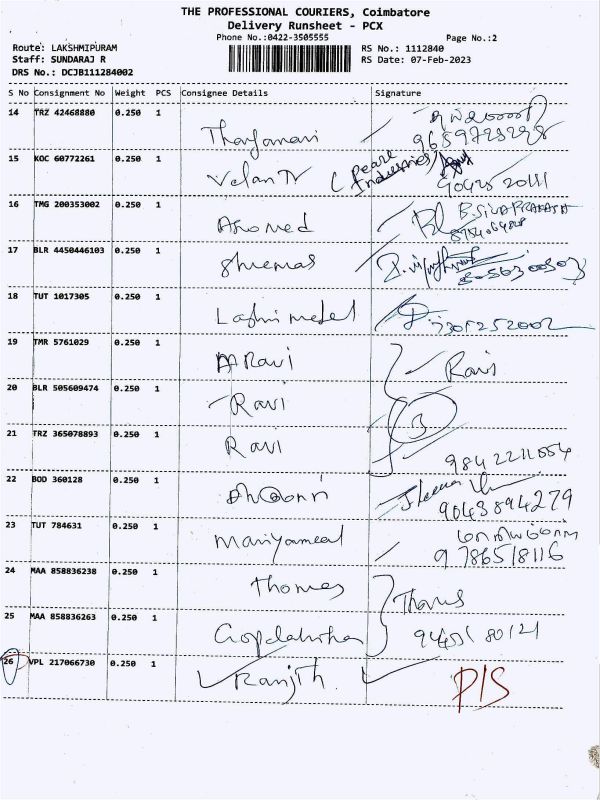 THE PROFESSIONAL COURIERS, Coimbatore
Delivery Runsheet - PCX
Phone No.:0422-3505555
Page No.:2
Route: LAKSHMIPURAM
RS No.: 1112840
Staff: SUNDARAJ R
RS Date: 07-Feb-2023
DRS No.: DCJB111284002
S No Consignment No Weight PCS Consignee Details Signature
14 TRZ 42468880 0.250 1
15 KOC 60772261 0.250 1 Velan TV (Pearl Industries)
16 TMG 200353002 0.250 1 B.SIVAPRAKASH
17 BLR 4450446103 0.250 1
18 TUT 1017305 0.250 1 7305252002
19 TMR 5761029 0.250 1 Ravi
20 BLR 505609474 0.250 1 Ravi
3
21 TRZ 365078893 0.250 1 Ravi
22 BOD 360128 0.250 1 9043894279
23 TUT 784631 0.250 1 9786518116
24 MAA 858836238 0.250 1 Thomas
25 MAA 858836263 0.250 1
26 VPL 217066730 0.250 1 Ranjith. D/S